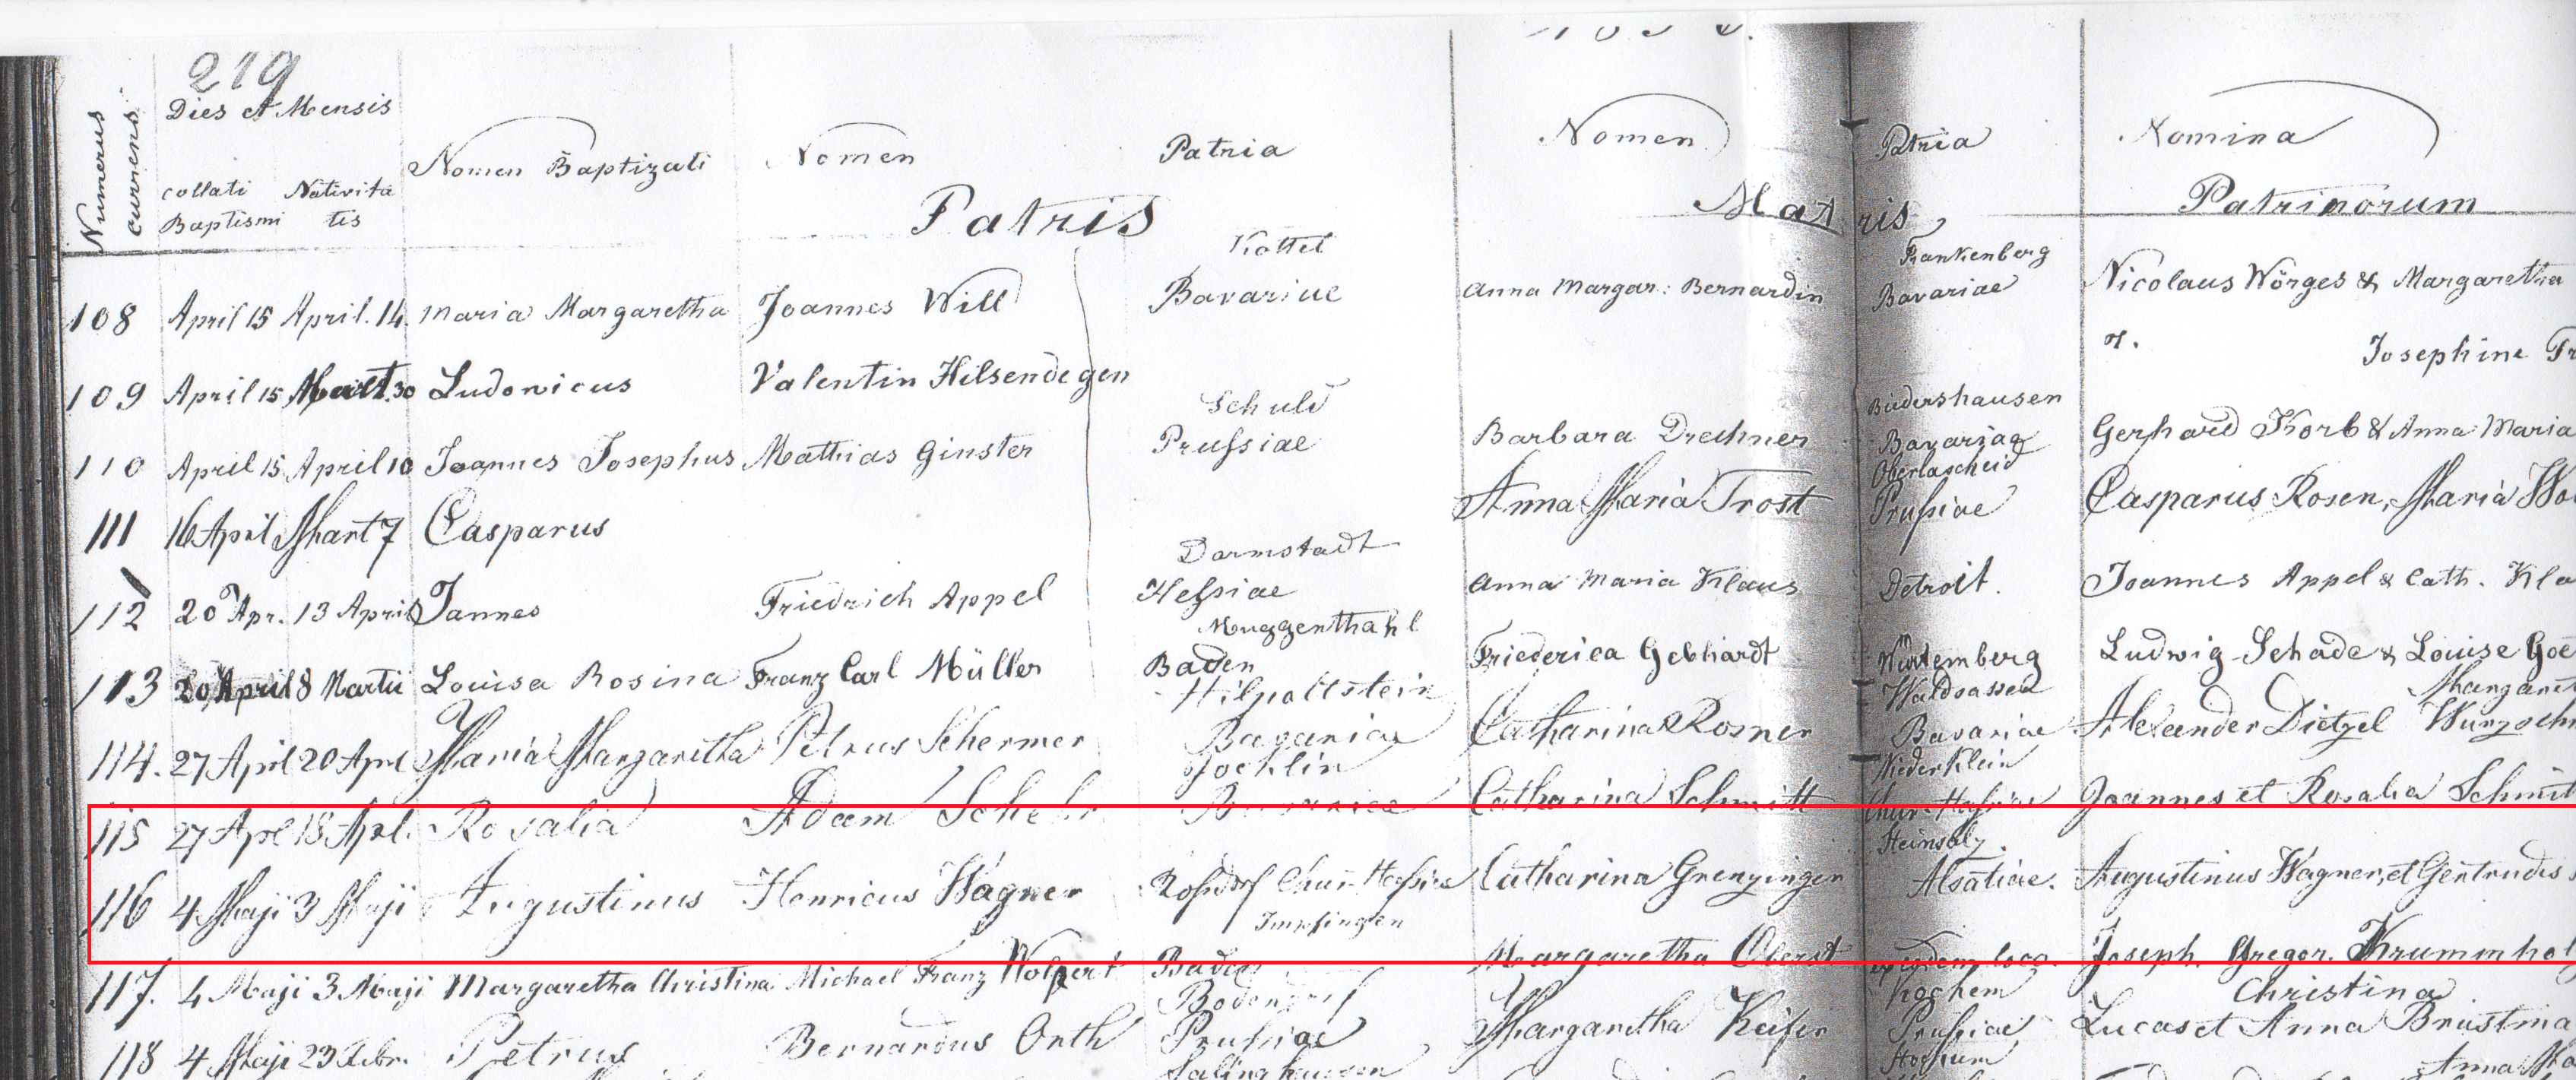 219
Numerus currens
Dies et Mensis
collati Baptismi
Nativitatis
Nomen Baptizati
Nomen
Patria
Patris
Nomen
Patria
Matris
Nomina
Patrinorum
Kottel Frankenberg
108 April 15 April. 14. Maria Margaretha Joannes Will Bavariae Anna Margar: Bernardin Bavariae Nicolaus Wörges & Margaretha
Josephine
109 April 15 Mart. 30 Ludovicus Valentin Hilsendegen
Schuld Biedershausen
110 April 15 April 10 Joannes Josephus Mathias Ginster Prussiae Barbara Drechner Bavariae Gerhard Korb & Anna Maria
Oberlascheid
111 16 April Mart 7 Casparus Anna Maria Trost Prussiae Casparus Rosen, Maria
Darmstadt
112 20 Apr. 13 April Jannes Friedrich Appel Hessiae Anna Maria Klaus Detroit. Joannes Appel & Cath. Kla
Muggenthahl
113 20 April 8 Martii Louisa Rosina Franz Carl Müller Baden Friederica Gebhardt Würtemberg Ludwig Schade & Louise Goe
Hilpoltstein Waldsassen Margaret
114. 27 April 20 Apri Maria Margaretha Petrus Schermer Bavariae Catharina Rosner Bavariae Alexander Dietzel
Jocklin Niederklein
115 27 Apl 18 Apl. Rosalia Adam Schehr Bavariae Catharina Schmitt Chur-Hassiae Joannes et Rosalia Schmitt
116 4 Maji 3 Maji Augustinus Henricus Wagner Rossdorf Chur-Hassiae Catharina Grenzinger Alsatiae. Augustinus Wagner, et Gertrudis
Impfingen
117. 4 Maji 3 Maji Margaretha Christina Michael Franz Wolpert Baden Margaretha Oberst ex eodem loco. Joseph. Gregor. Krummhol
Bodendorf Kochem Christina
118 4 Maji 23 Febr. Petrus Bernardus Orth Prussiae Margaretha Keifer Prussiae Lucas et Anna Brustina